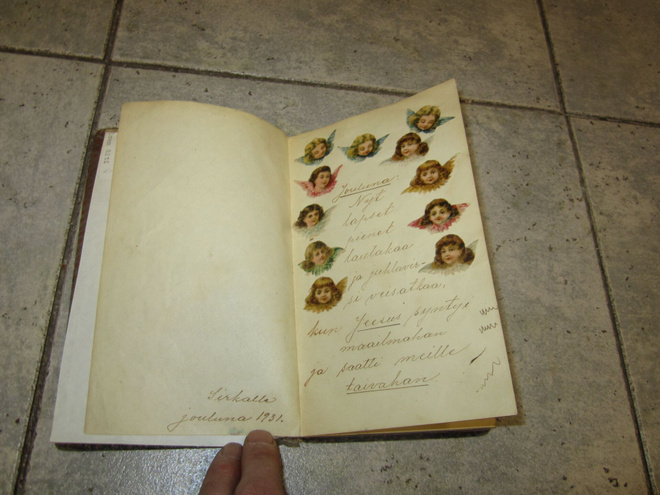 Sirkalle
jouluna 1931.
Jouluna.
Nyt
lapset
pienet
laulakaa
ja juhlavir-
si veisatkaa,
kun Jeesus syntyi
maailmahan
ja saatti meille
taivahan.